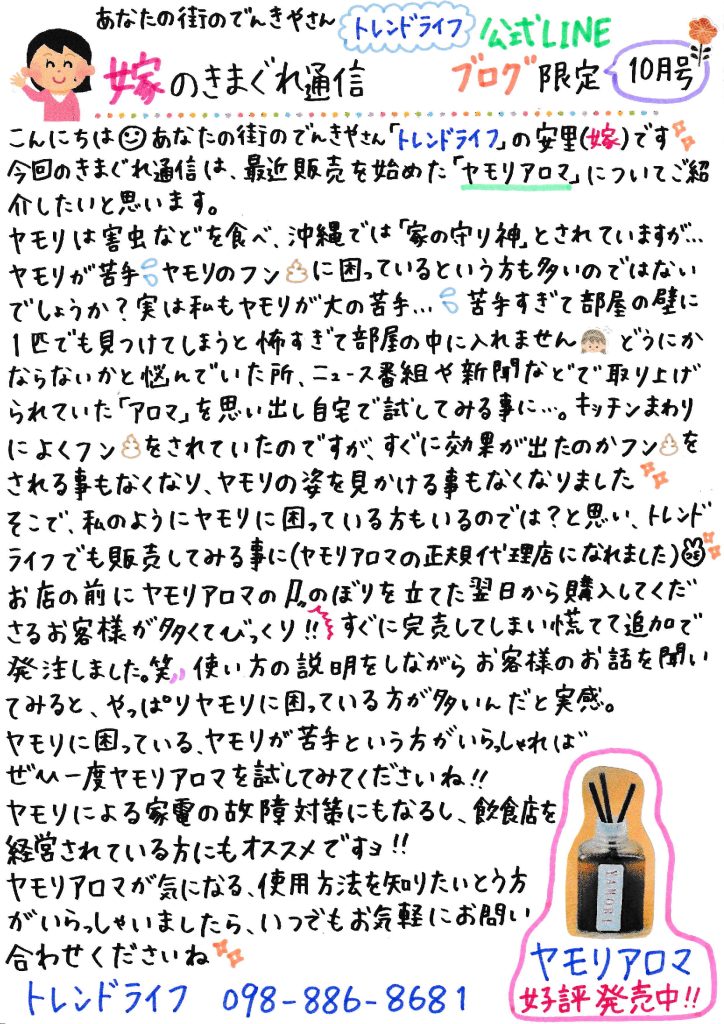 あなたの街のでんきやさん トレンドライフ 公式LINE
嫁のきまぐれ通信 ブログ限定 10月号
こんにちは あなたの街のでんきやさん「トレンドライフ」の安里(嫁)です
今回のきまぐれ通信は、最近販売を始めた「ヤモリアロマ」についてご紹
介したいと思います。
ヤモリは害虫などを食べ、沖縄では「家の守り神」とされていますが…
ヤモリが苦手 ヤモリのフン に困っているという方も多いのではない
でしょうか?実は私もヤモリが大の苦手… 苦手すぎて部屋の壁に
1匹でも見つけてしまうと怖すぎて部屋の中に入れません どうにか
ならないかと悩んでいた所、ニュース番組や新聞などで取り上げ
られていた「アロマ」を思い出し自宅で試してみる事に…。キッチンまわり
によくフン をされていたのですが、すぐに効果が出たのかフン を
される事もなくなり、ヤモリの姿を見かける事もなくなりました
そこで、私のようにヤモリに困っている方もいるのでは?と思い、トレンド
ライフでも販売してみる事に(ヤモリアロマの正規代理店になれました)
お店の前にヤモリアロマの のぼりを立てた翌日から購入してくだ
さるお客様が多くてびっくり!! すぐに完売してしまい慌てて追加で
発注しました。笑 使い方の説明をしながらお客様のお話を聞い
てみると、やっぱりヤモリに困っている方が多いんだと実感。
ヤモリに困っている、ヤモリが苦手という方がいらっしゃれば
ぜひ一度ヤモリアロマを試してみてくださいね!!
ヤモリによる家電の故障対策にもなるし、飲食店を
経営されている方にもオススメですョ!!
ヤモリアロマが気になる、使用方法を知りたいとう方
がいらっしゃいましたら、いつでもお気軽にお問い
合わせくださいね
YAMORI
ヤモリアロマ
好評発売中!!
トレンドライフ 098-886-8681